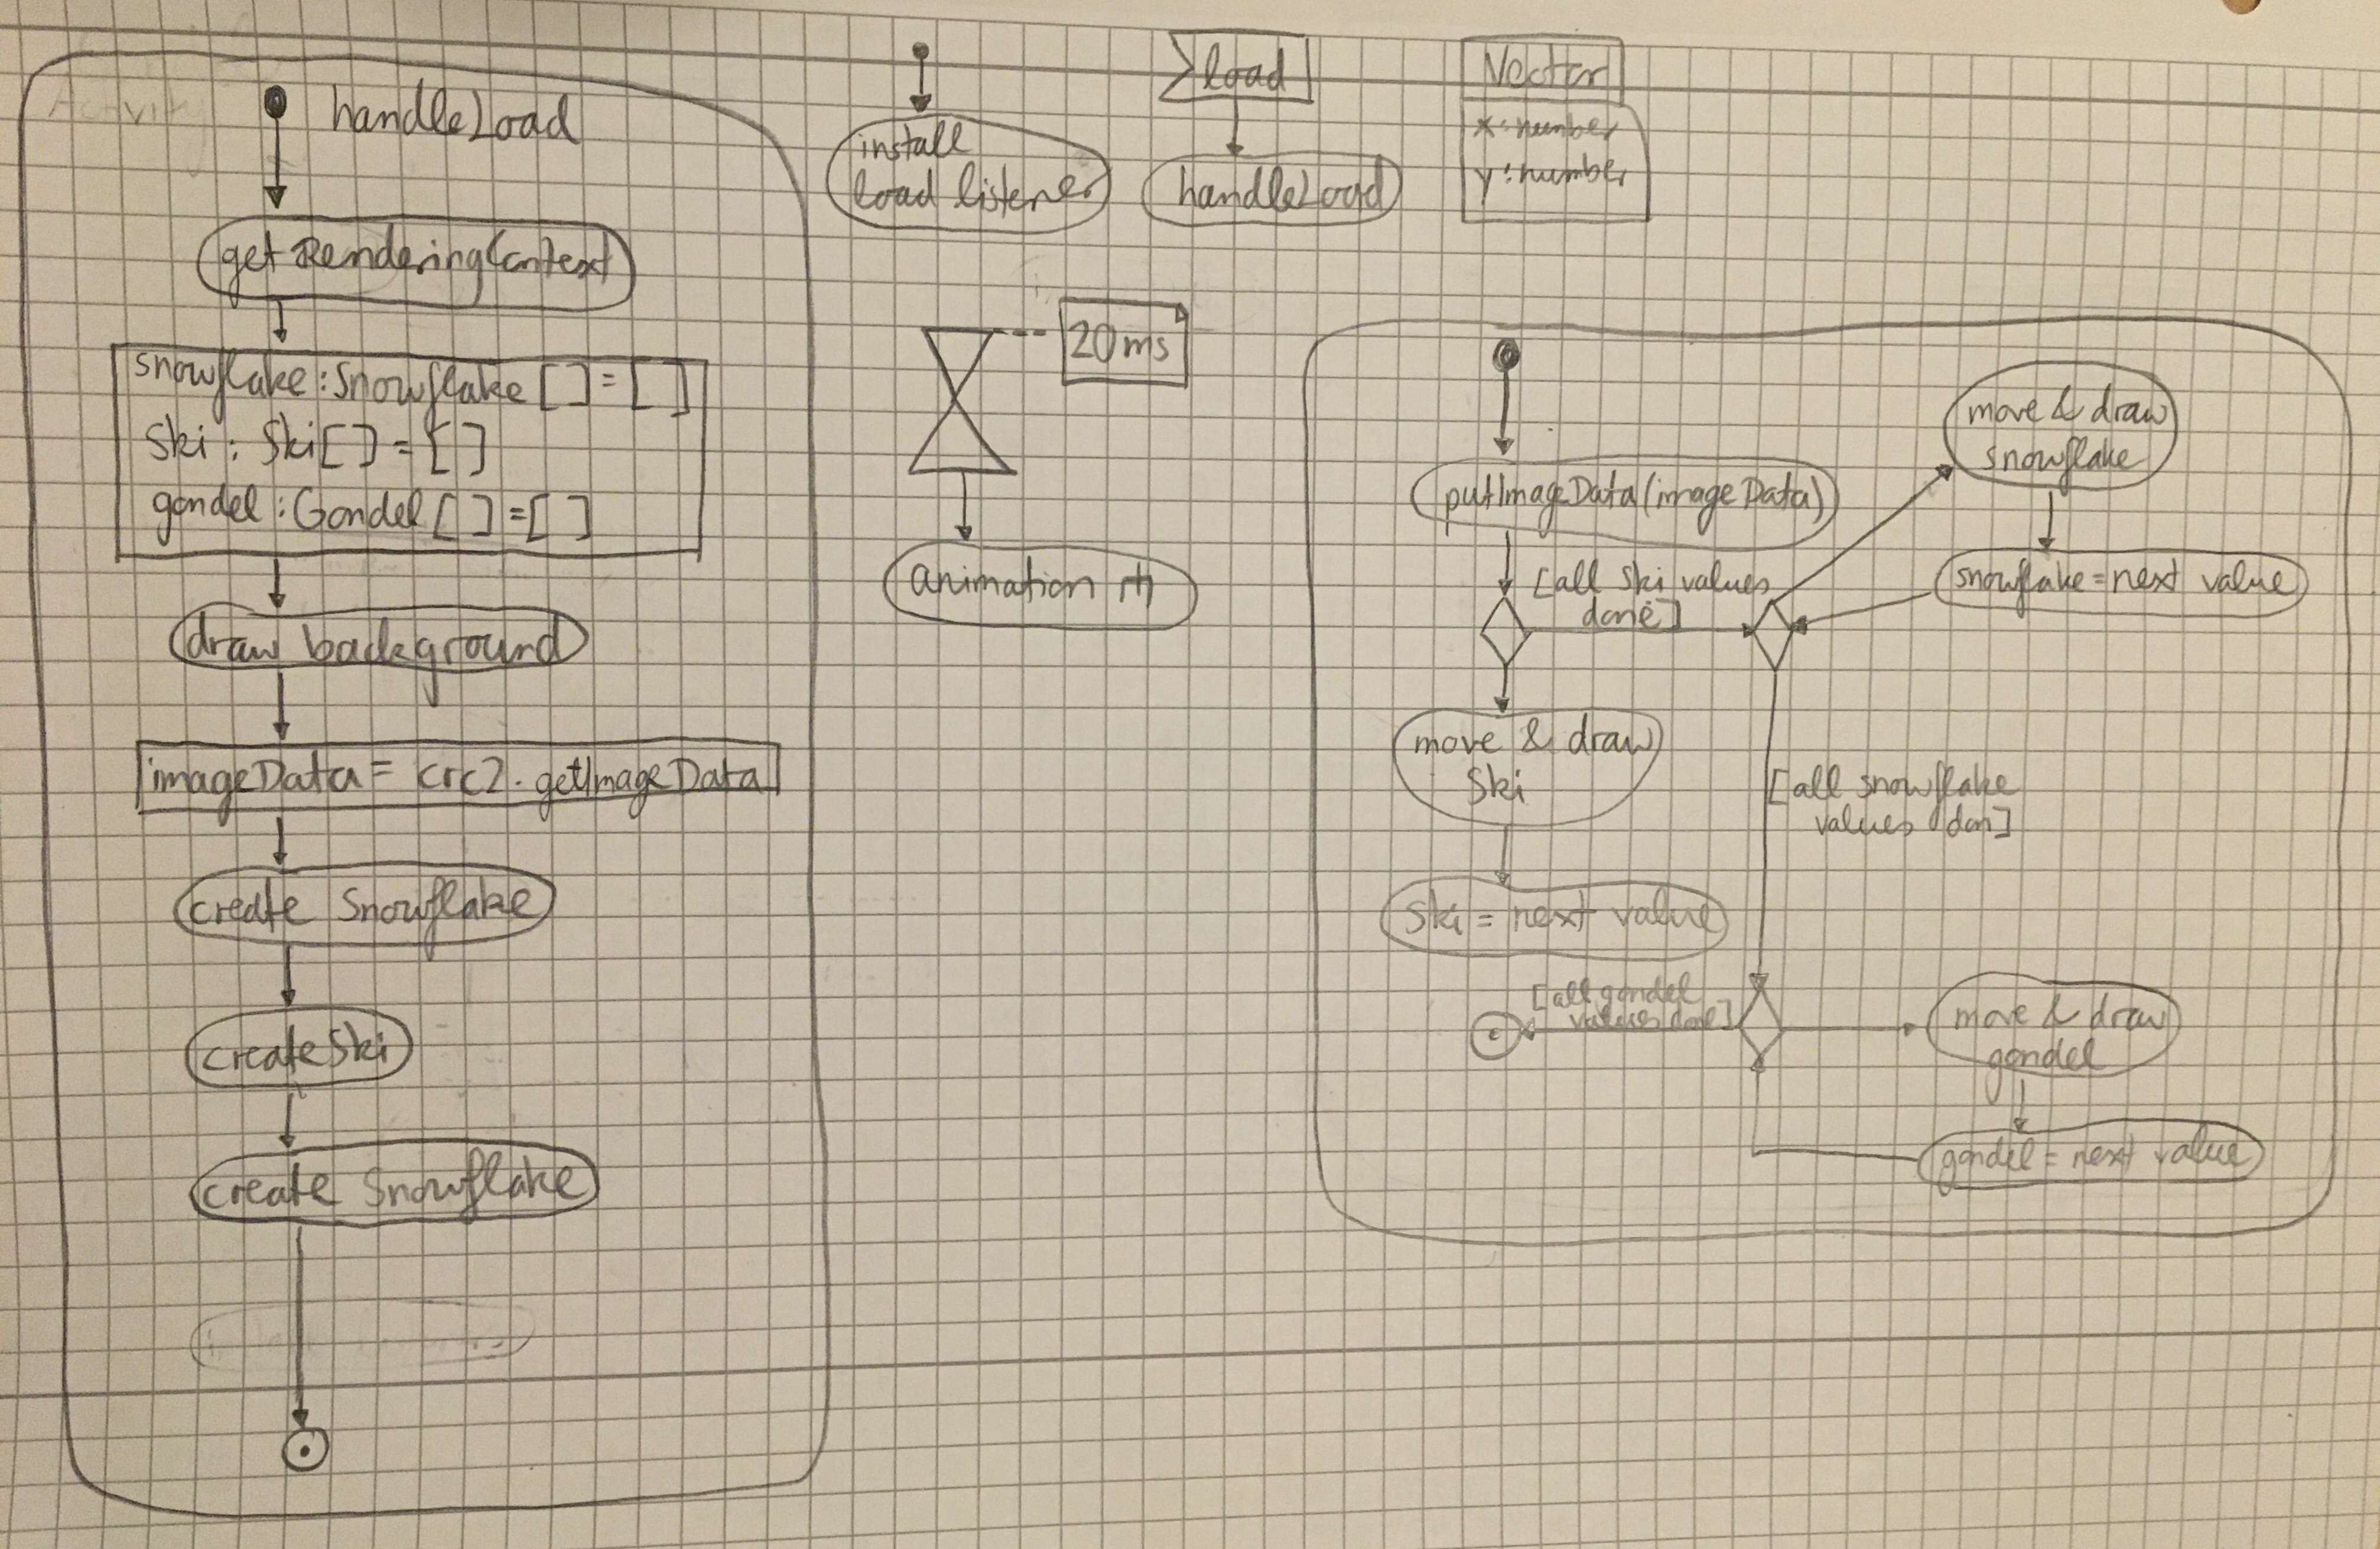 Activity
handleLoad
getRenderingContext
snowflake : Snowflake [ ] = [ ]
Ski : Ski [ ] = [ ]
gondel : Gondel [ ] = [ ]
draw background
imageData = crc2. getImageData
create Snowflake
create Ski
create Snowflake
install
load listener
load
handleLoad
Vector
x : number
y : number
20 ms
animation
putImageData (imageData)
[all Ski values
done]
move & draw
Ski
Ski = next value
move & draw
snowflake
snowflake = next value
[all snowflake
values don]
[all gondel
values done]
move & draw
gondel
gondel = next value